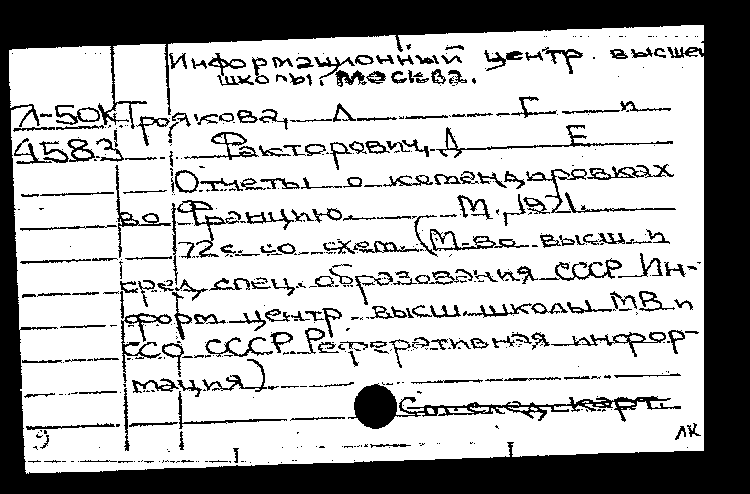 Информационный центр высшей
школы, Москва.
Л-50К Троякова, Л Г и
4583 Факторович, Д Е
Отчеты о командировках
во Францию. М., 1971.
72с. со схем. (М-во высш. и
сред. спец. образования СССР Ин-
форм. центр. высш. школы МВ и
ССО СССР Реферативная инфор-
мация)
См. след. карт.
9 ЛК